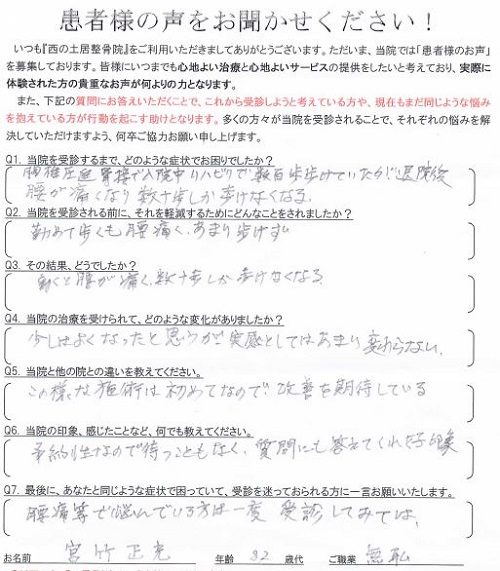 患者様の声をお聞かせください！
いつも『西の土居整骨院』をご利用いただきましてありがとうございます。ただいま、当院では「患者様のお声」
を募集しております。皆様にいつまでも心地よい治療と心地よいサービスの提供をしたいと考えており、実際に
体験された方の貴重なお声が何よりの力となります。
また、下記の質問にお答えいただくことで、これから受診しようと考えている方や、現在もまだ同じような悩み
を抱えている方が行動を起こす助けとなります。多くの方々が当院を受診されることで、それぞれの悩みを解
決していただけますよう、何卒ご協力お願い申し上げます。
Q1. 当院を受診するまで、どのような症状でお困りでしたか？
入院中リハビリで数百歩歩けていたが退院後
腰が痛くなり数十歩しか歩けなくなる。
Q2. 当院を受診される前に、それを軽減するためにどんなことをされましたか？
勤めて歩くも腰痛く、あまり歩けず
Q3. その結果、どうでしたか？
動くと腰が痛く、数十歩しか歩けなくなる
Q4. 当院の治療を受けられて、どのような変化がありましたか？
少しはよくなったと思うが、実感としてはあまり変わらない。
Q5. 当院と他の院との違いを教えてください。
この様な施術は初めてなので、改善を期待している
Q6. 当院の印象、感じたことなど、何でも教えてください。
予約性なので待つこともなく、質問にも答えてくれ好印象
Q7. 最後に、あなたと同じような症状で困っていて、受診を迷っておられる方に一言お願いいたします。
腰痛等で悩んでいる方は一度受診してみては、
お名前 宮竹正光 年齢 82 歳代 ご職業 無職